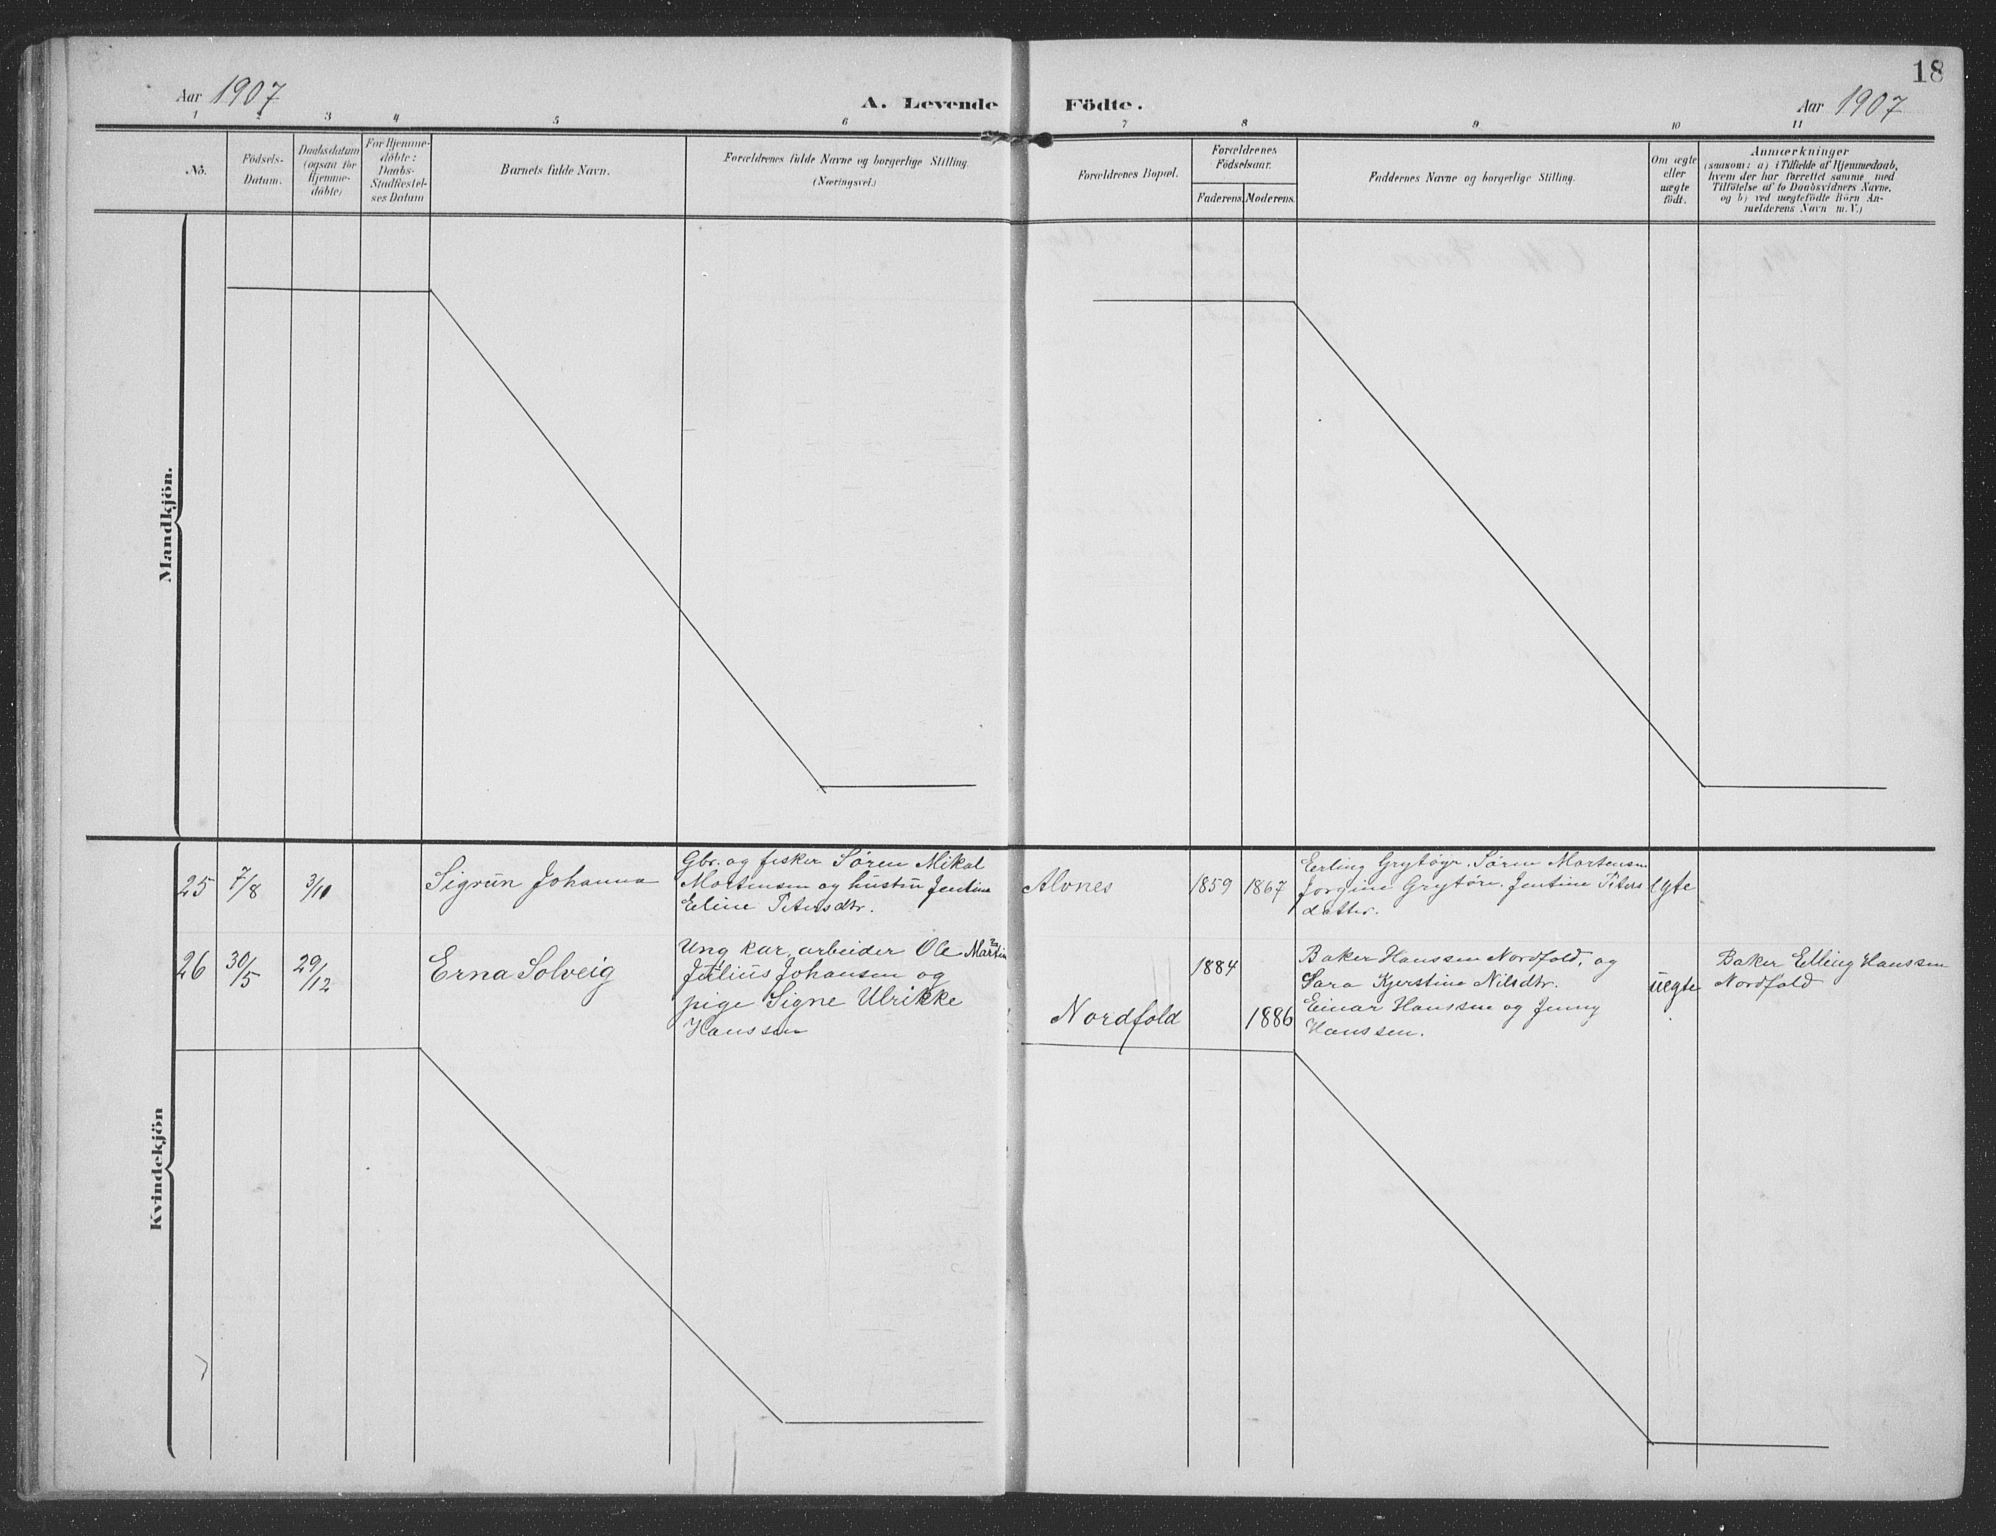 18
Aar 1907
A. Levende Födte.
Aar 1907
1 2 3 4 5 6 7 8 9 10 11
No.
Födsels-
Datum.
Daabsdatum
(ogsaa for
Hjemme-
döbte)
For Hjemme-
döbte:
Daabs-
Stadfæstel-
ses Datum
Barnets fulde Navn.
Forældrenes fulde Navne og borgerlige Stilling.
(Næringsvei.)
Forældrenes Bopæl.
Forældrenes
Födselsaar.
Faderens
Moderens.
Faddernes Navne og borgerlige Stilling.
Om ægte
eller
uægte
födt.
Anmærkninger
(saasom: a) i Tilfælde af Hjemmedaab,
hvem der har forrettet samme med
Tilföielse af to Daabsvidners Navne.
og b) ved uægtefödte Börn An-
melderens Navn m. V.)
Mandkjön.
Kvindekjön
25
7/8
3/10
Sigrun Johanna
Gbr. og fisker Søren Mikal
Mortensen og hustru Jentine
Eline Petersdtr.
Alvnes
1859
1867
Erling Grytøyr. Søren Mortensen
Jorgine Grytören. Jentine Peters
datter.
ægte
26
30/5
29/12
Erna Solveig
Ung kar, arbeider Ole Martin
Julius Johansen og
pige Signe Ulrikke
Hanssen
Nordfold
1884
1886
Baker Hanssen Nordfold, og
Sara Kjerstine Nilsdtr.
Einar Hanssen og Jenny
Hanssen.
uægte
Baker Elling Hanssen
Nordfold